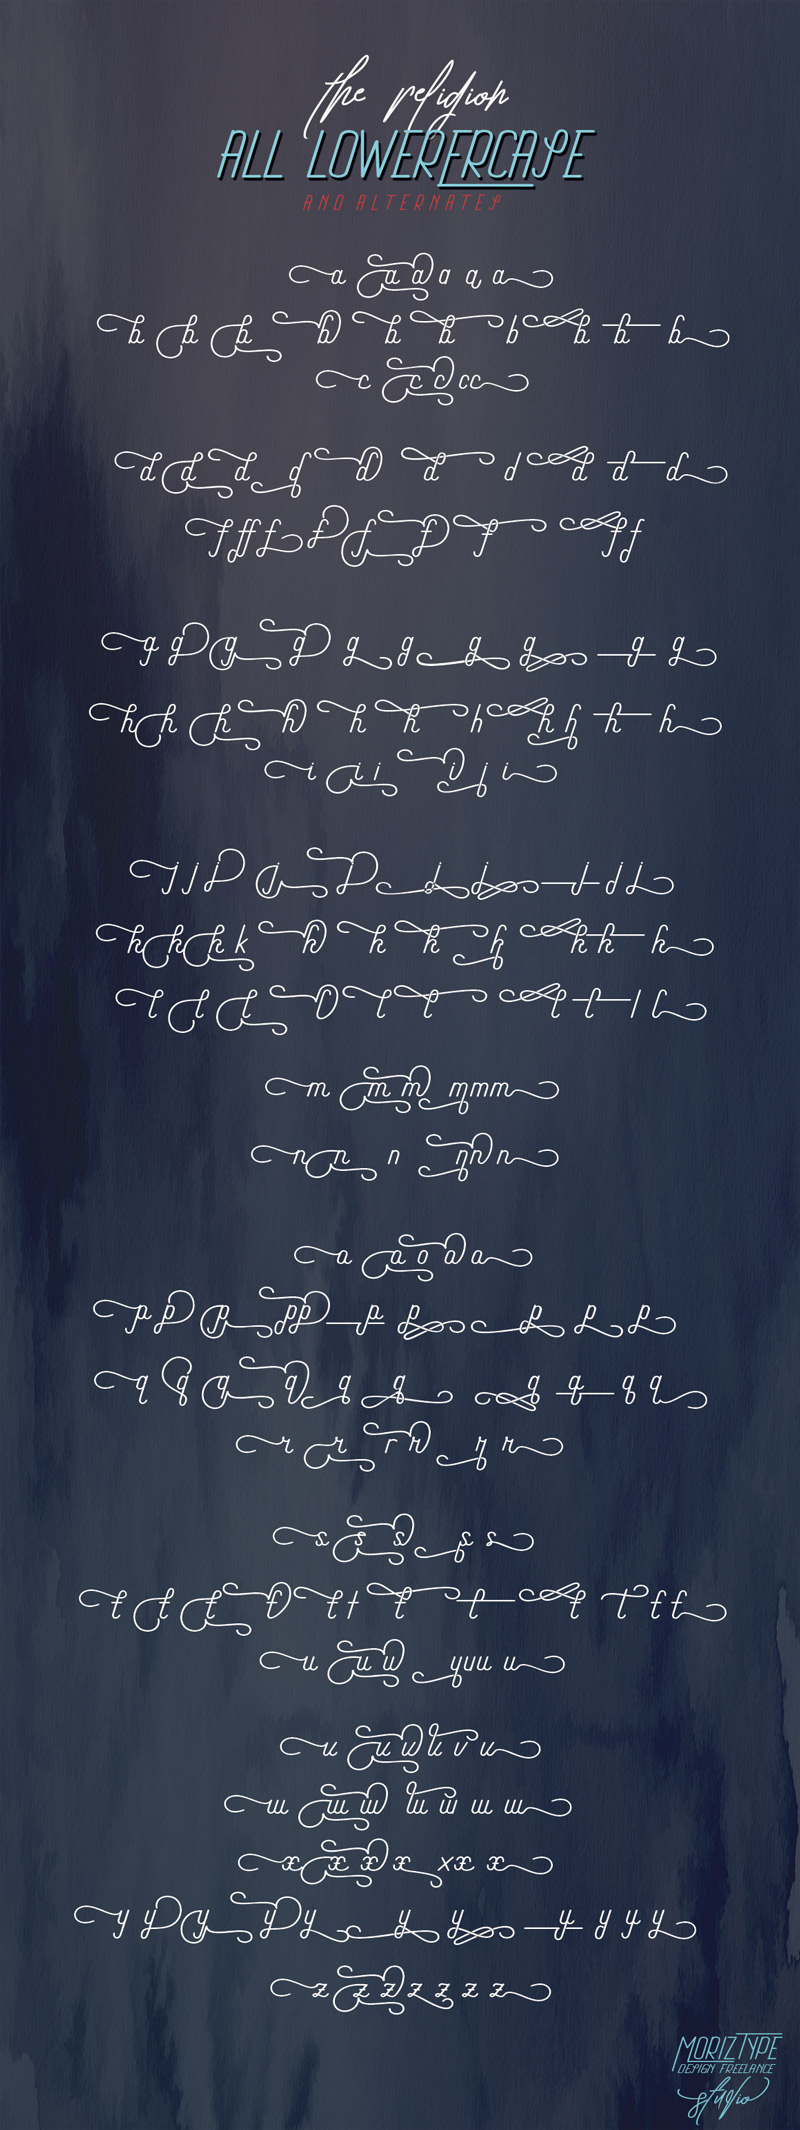 the religion
ALL LOWERERCASE
AND ALTERNATES
a a a a a a
b b b b b b b b b b
c c c c c
d d d d d d d d d d
f f f f f f f f f f
g g g g g g g g g g
h h h h h h h h h h h
i i i i j i
j j j j j j j j j j j
k k k k k k k k k k k
l l l l l l l l l l
m m m m m m
n n n n n n
a a o a a
p p p p p p p p p p
q q q q q q q q q q
r r r r r r
s s s s s
t t t t t t t t t t t t
u u u y u u u
u u u u v u
w w w w w w w
x x x x x x x
y y y y y y y y y y y
z z z z z z z
MORIZTYPE
DESIGN FREELANCE
studio